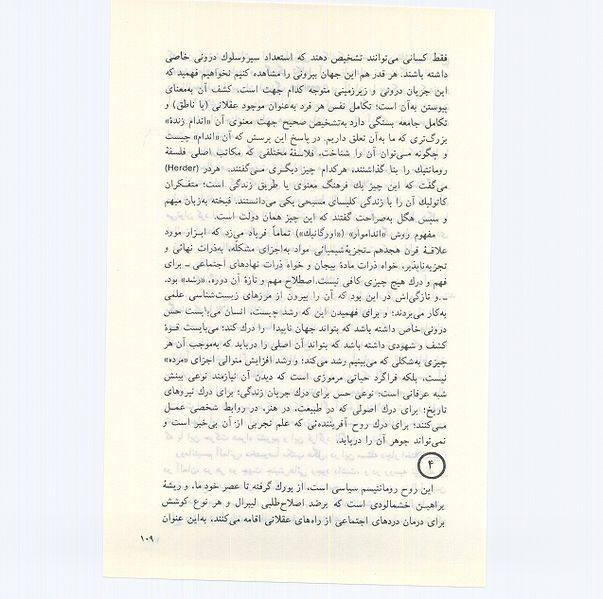 فقط کسانی می‌توانند تشخیص دهند که استعداد سیروسلوك درونی خاصی
داشته باشند. هر قدر هم این جهان بیرونی را مشاهده کنیم نخواهیم فهمید که
این جریان درونی و زیرزمینی متوجه کدام جهت است. کشف آن به‌معنای
پیوستن به‌آن است؛ تکامل نفس هر فرد به‌عنوان موجود عقلانی (یا ناطق) و
تکامل جامعه بستگی دارد به‌تشخیص صحیح جهت معنوی آن «اندام زندهٔ»
بزرگ‌تری که ما به‌آن تعلق داریم. در پاسخ این پرسش که آن «اندام» چیست
و چگونه می‌توان آن را شناخت، فلاسفهٔ مختلفی که مکاتب اصلی فلسفهٔ
رومانتیك را بنا گذاشتند، هرکدام چیز دیگری می‌گفتند. هردر (Herder)
می‌گفت که این چیز یك فرهنگ معنوی یا طریق زندگی است؛ متفکران
کاتولیك آن را با زندگی کلیسای مسیحی یکی می‌دانستند. فیخته به‌زبان مبهم
و سپس هگل به‌صراحت گفتند که این چیز همان دولت است.
مفهوم روش «انداموار» («اورگانیك») تماماً فریاد می‌زد که ابزار مورد
علاقهٔ قرن هجدهم ــ تجزیهٔ شیمیائی مواد به‌اجزای مشکله، به‌ذرات نهائی و
تجزیه‌ناپذیر، خواه ذرات مادهٔ بیجان و خواه ذرات نهادهای اجتماعی ــ برای
فهم و درك هیچ چیزی کافی نیست. اصطلاح مهم و تازهٔ آن دوره، «رشد» بود.
ــ و تازگی‌اش در این بود که آن را بیرون از مرزهای زیست‌شناسی علمی
به‌کار می‌بردند؛ و برای فهمیدن این که رشد چیست، انسان می‌بایست حس
درونی خاص داشته باشد که بتواند جهان ناپیدا را درك کند؛ می‌بایست قوهٔ
کشف و شهودی داشته باشد که بتواند آن اصلی را دریابد که به‌موجب آن هر
چیزی به‌شکلی که می‌بینیم رشد می‌کند؛ و رشد افزایش متوالی اجزای «مرده»
نیست، بلکه فراگرد حیاتی مرموزی است که دیدن آن نیازمند نوعی بینش
شبه عرفانی است: نوعی حس برای درك جریان زندگی؛ برای درك نیروهای
تاریخ؛ برای درك اصولی که در طبیعت، در هنر، در روابط شخصی عمل
می‌کنند؛ برای درك روح آفریننده‌ئی که علم تجربی از آن بی‌خبر است و
نمی‌تواند جوهر آن را دریابد.
۴
این روح رومانتیسم سیاسی است، از بورك گرفته تا عصر خود ما، و ریشهٔ
براهین خشم‌آلودی است که برضد اصلاح‌طلبی لیبرال و هر نوع کوشش
برای درمان دردهای اجتماعی از راه‌های عقلانی اقامه می‌کنند، به‌این عنوان
۱۰۹